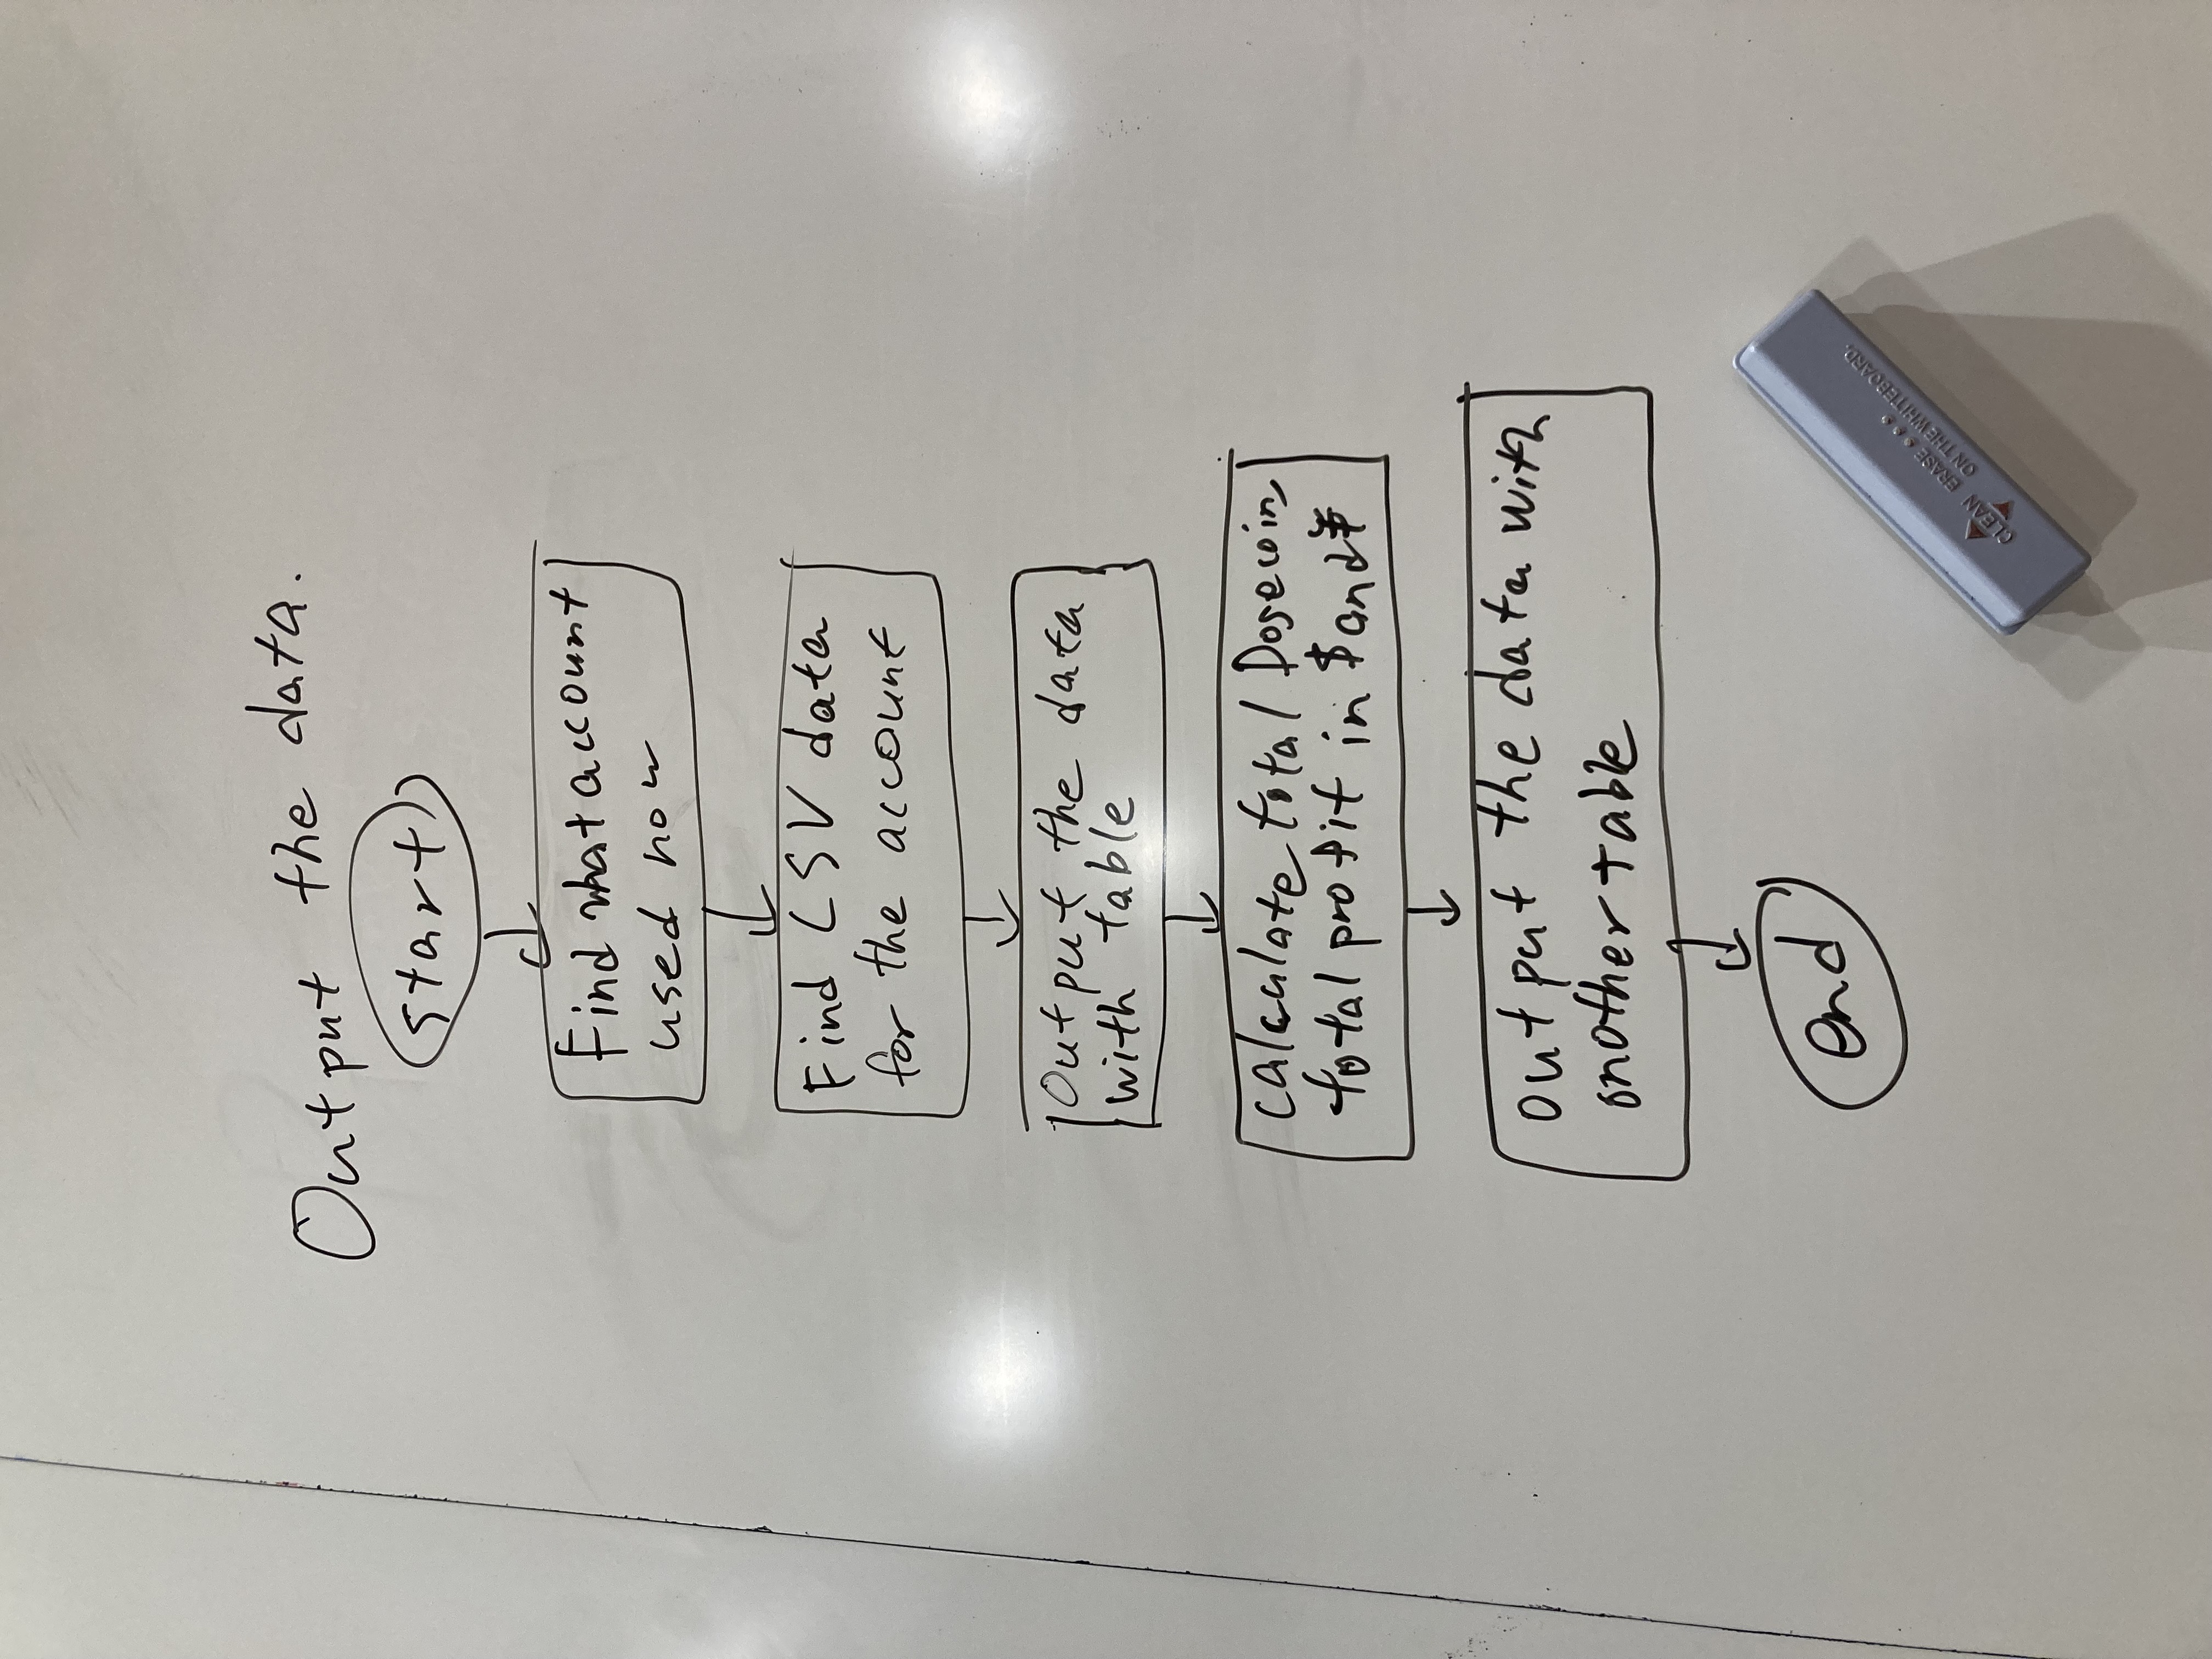 Output the data.
start
Find what account
used now
Find CSV data
for the account
Output the data
with table
calculate total Dogecoin,
total profit in $ and ¥
output the data with
another table
end
CLEAN ERASE
ON THE WHITEBOARD.